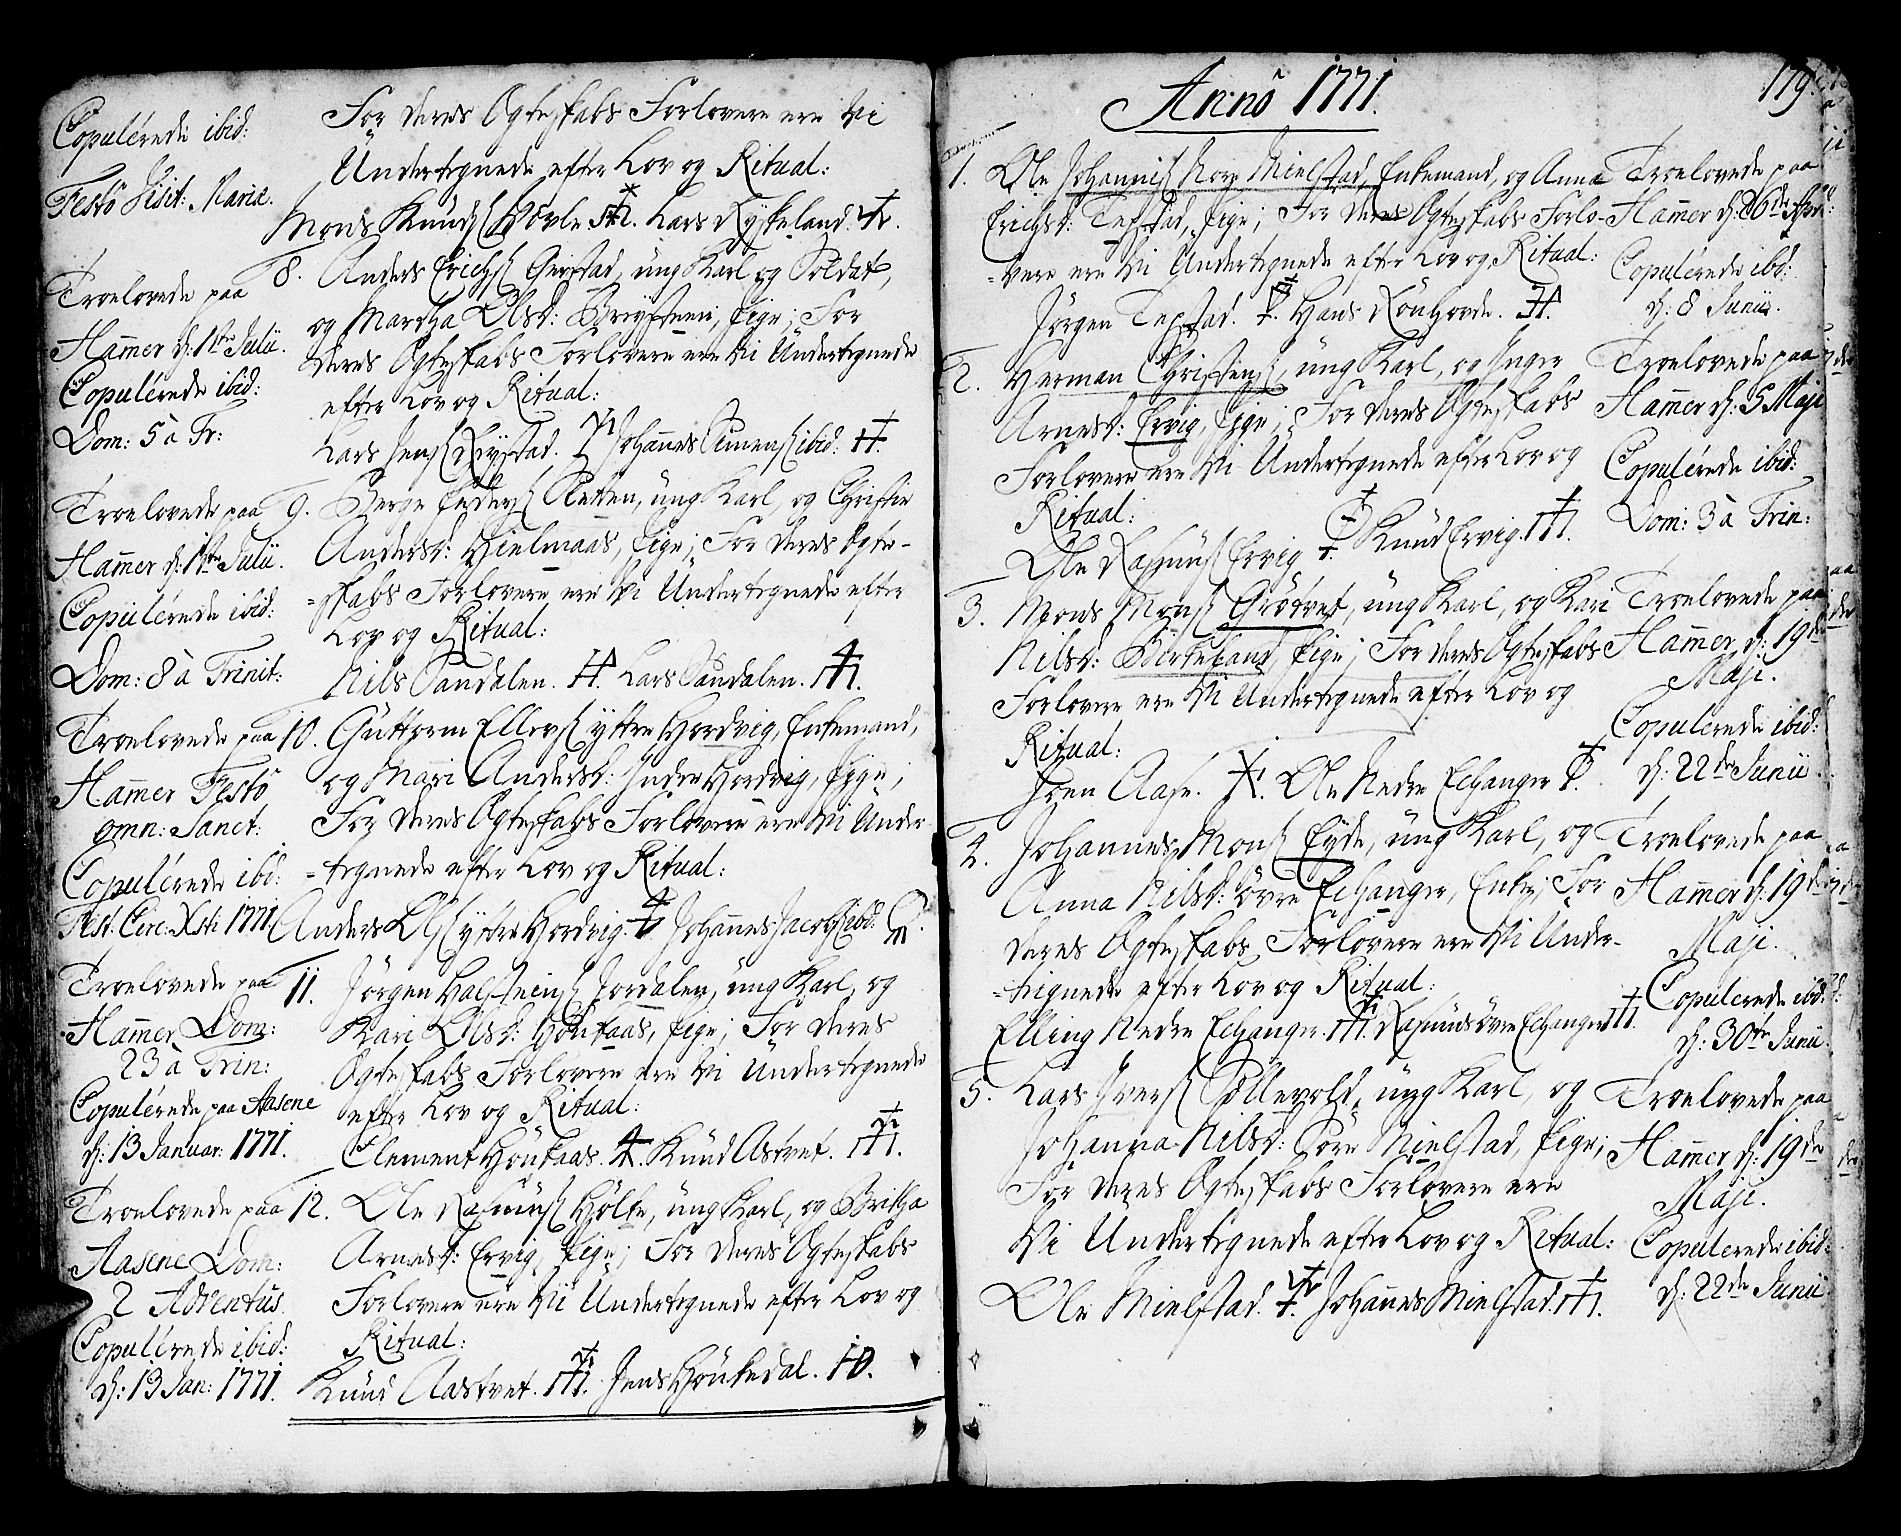 Copulerede ibid:
Festo Visit: Mariæ.
For deres Ægteskabs Forlovere ere Vi
Undertegnede efter Lov og Ritual:
Mons Knuds Høvle Lars Ryskeland
Troelovede paa
Hamer d: 1te Julii.
Copulerede ibid:
Dom: 5 à Tr:
8. Anders Erichs Gierstad, ung Karl og Soldat,
og Martha Olsd: Brygsteen, Pige; For
deres Ægteskabs Forlovere ere Vi Undertegnede
efter Lov og Ritual:
Lars Jens Johannes Simens ibid:
Troelovede paa
Hamer d: 1te Julii.
Copulerede ibid:
Dom: 8 à Trinit:
9. Børge Peders Retten, ung Karl, og Christie
Andersd: Hielmaas, Pige; For deres Ægte-
=skabs Forlovere ere Vi Undertegnede efter
Lov og Ritual:
Nils Sandalen. Lars Sandalen.
Troelovede paa
Hamer Festo
omn: Sanct:
Copulerede ibd:
Fest: Circ: Xsti 1771.
10. Guttorm Ellers yttre Hordvig, Enkemand,
og Mari Andersd: Indre Hordvig, Pige;
For deres Ægteskabs Forlovere ere Vi Under-
=tegnede efter Lov og Ritual:
Anders Ols yttre Hordvig. Johannes Jacobs ibd:
Troelovede paa
Hamer Dom:
23 à Trin:
Copulerede paa Aasene
d: 13 Januar: 1771.
11. Jörgen Halsteins Jordalen, ung Karl, og
Kari Olsd: Höukaas, Pige; For deres
Ægteskabs Forlovere ere Vi Undertegnede
efter Lov og Ritual:
Clement Höukaas. Knud Astvet.
Troelovede paa
Aasene Dom:
2 Adventus.
Copulerede ibid:
d: 13 Jan: 1771.
12. Ole Rasmus Hölke, ung Karl, og Britha
Arnesd: Ervig, Pige; For deres Ægteskabs
Forlovere ere Vi Undertegnede efter Lov og
Ritual:
Knud Aastvet. Jens Höukedal.
Anno 1771.
179.
1. Ole Johannis Nore Mielstad, Enkemand, og Anna
Erichsd: Tepstad, Pige; For deres Ægteskabs Forlo-
=vere ere Vi Undertegnede efter Lov og Ritual:
Jörgen Tepstad. Hans Rönhovde.
Troelovede paa
Hamer d: 26de April:
Copulerede ibd:
d: 8 Junii.
2. Herman Christens, ung Karl, og Inger
Arnesd: Ervig, Pige; For deres Ægteskabs
Forlovere ere Vi Undertegnede efter Lov og
Ritual:
Ole Rasmus Ervig Knud Ervig.
Troelovede paa
Hamer d: 5 Maji
Copulerede ibid:
Dom: 3 à Trin:
3. Mons Mons Grötvet, ung Karl, og Kari
Nilsd: Birkeland, Pige; For deres Ægteskabs
Forlovere ere Vi Undertegnede efter Lov og
Ritual:
Joen Aase. Ole Nedre Echanger
Troelovede paa
Hamer d: 19de
Maji.
Copulerede ibid:
d: 22de Junii
4. Johannes Mons Eyde, ung Karl, og
Anna Nilsd: övre Echanger, Enke; For
deres Ægteskabs Forlovere ere Vi Under-
=tegnede efter Lov og Ritual:
Elling Nedre Echanger. Rasmus övre Echanger
Troelovede paa
Hamer d: 19de
Maji.
Copulerede ibd:
d: 30te Junii.
5. Lars Ivers Tollevold, ung Karl, og
Johanna Nilsd: Söre Mielstad, Pige;
For deres Ægteskabs Forlovere ere
Vi Undertegnede efter Lov og Ritual:
Ole Mielstad. Johannes Mielstad.
Troelovede paa
Hamer d: 19de
Maji.
Copulerede ibid:
d: 22de Junii